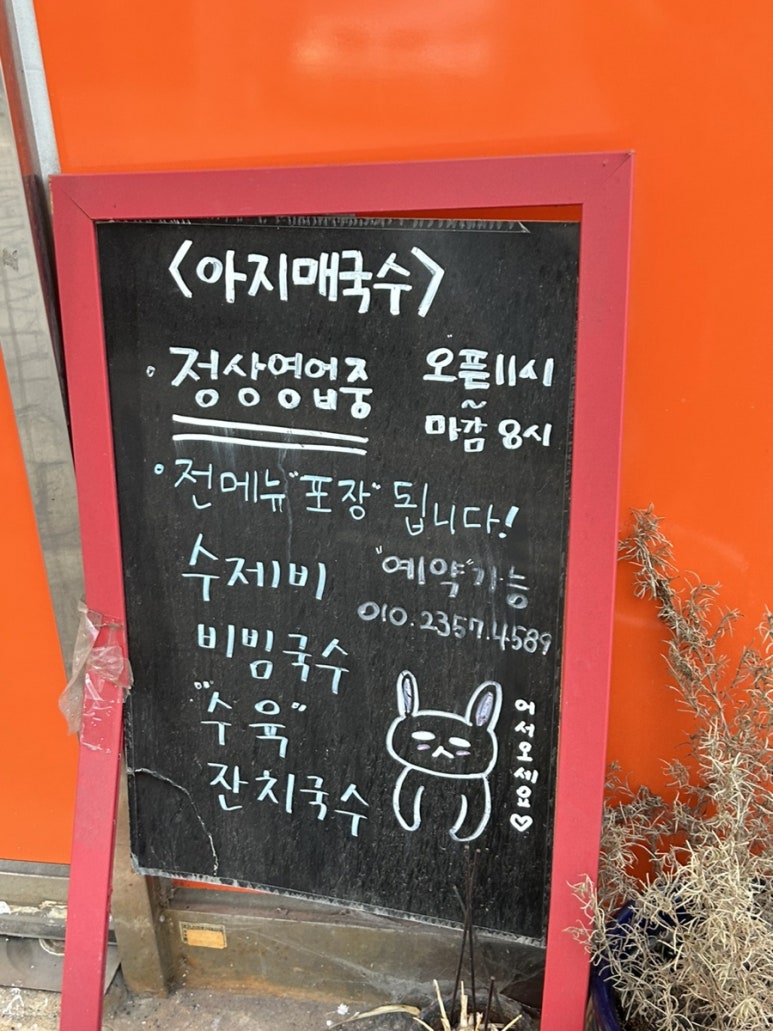 <아지매국수>
• 정상영업중
오픈 11시
~
마감 8시
• 전메뉴 "포장" 됩니다!
수제비
"예약"가능
010.2357.4589
비빔국수
"수육"
잔치국수
어서오세요♡